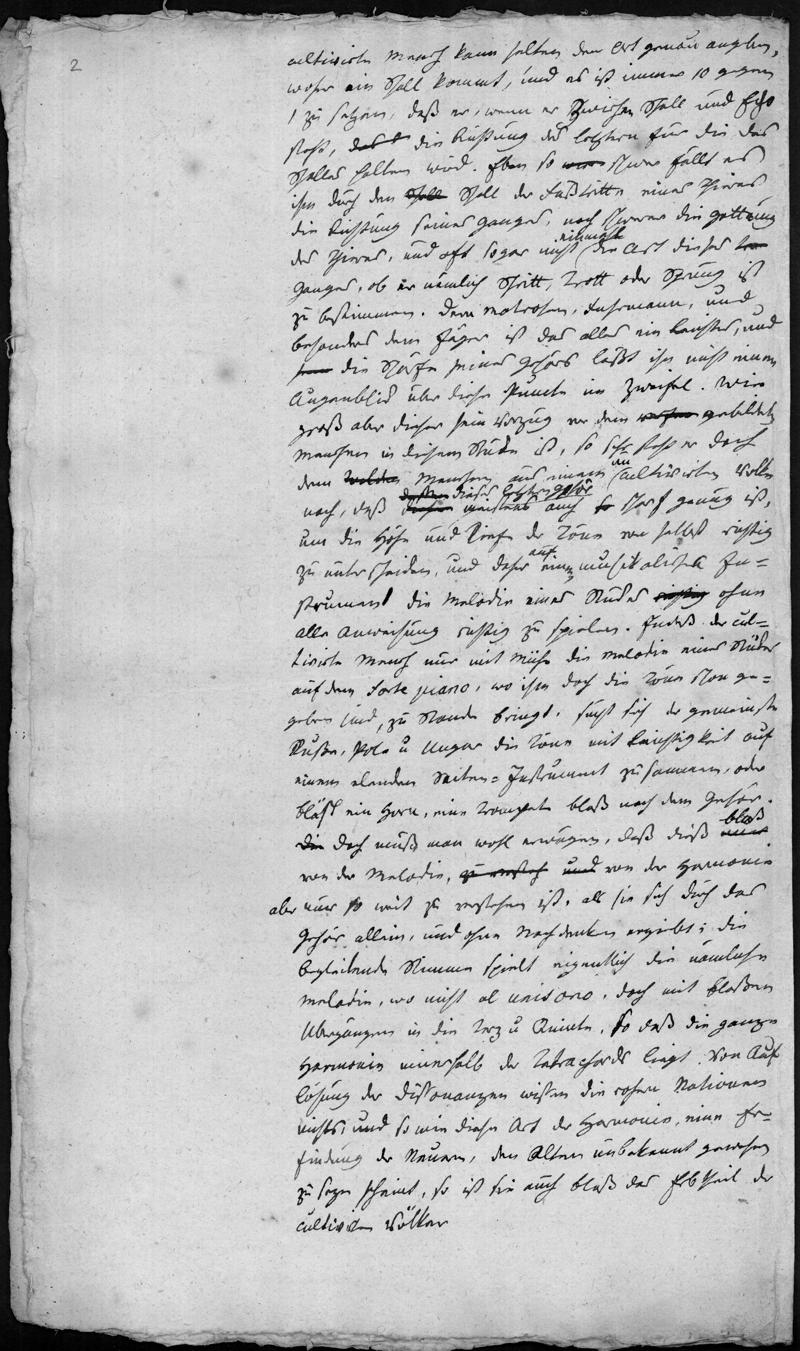 2
cultivirte Mensch kann selten den Ort genau angeben,
woher ein Schall kommt, und es ist immer 10 gegen
1 zu setzen, daß er, wenn er zwischen Schall und Echo
steht, die Richtung des letztern für die des
Schalles halten wird. Eben so schwer fällt es
ihm durch den Schall der Fußtritte eines Thieres
die Richtung seines Ganges, noch schwerer die Gattung
des Thieres, und oft sogar nicht einmahl die Art dieses
Ganges, ob er nämlich Schritt, Trott oder Sprung ist
zu bestimmen. Dem Matrosen, Fuhrmann, und
besonders dem Jäger ist das alles ein leichtes, und
die Schärfe seines Gehörs läßt ihn nicht einen
Augenblick über diese Puncte im Zweifel. Wie
groß aber dieser sein Vorzug vor dem gebildeten
Menschen in diesem Stücke ist, so steht er doch
dem Menschen aus einem cultivirten Volke
nach, daß dieses letztern Gehör meistens auch scharf genug ist,
um die Höhe und Tiefe der Töne von selbst richtig
zu unterscheiden, und daher auf einem musikalischen In=
strument die Melodie eines Stückes ohne
alle Anweisung richtig zu spielen. Indeß der cul=
tivirte Mensch nur mit Mühe die Melodie eines Stückes
auf dem Forte piano, wo ihm doch die Töne schon ge=
geben sind, zu Stande bringt, sucht sich der gemeinste
Russe, Pole u Ungar die Töne mit Leichtigkeit auf
einem elenden Saiten=Instrument zusammen, oder
bläst ein Horn, eine Trompete bloß nach dem Gehör.
Doch muß man wohl erwägen, daß dieß bloß
von der Melodie, von der Harmonie
aber nur so weit zu verstehen ist, als sie sich durch das
Gehör allein, und ohne Nachdenken ergiebt; die
begleitende Stimme spielt eigentlich die nämliche
Melodie, wo nicht al unisono, doch mit bloßen
Übergängen in die Terz u Quinte, so daß die ganze
Harmonie innerhalb der Tetrachords liegt. Von Auf
lösung der Dissonanzen wissen die rohen Nationen
nichts; und so wie diese Art der Harmonie, eine Er=
findung der Neuern, den Alten unbekannt gewesen
zu seyn scheint, so ist sie auch bloß das Erbtheil der
cultivirten Völker